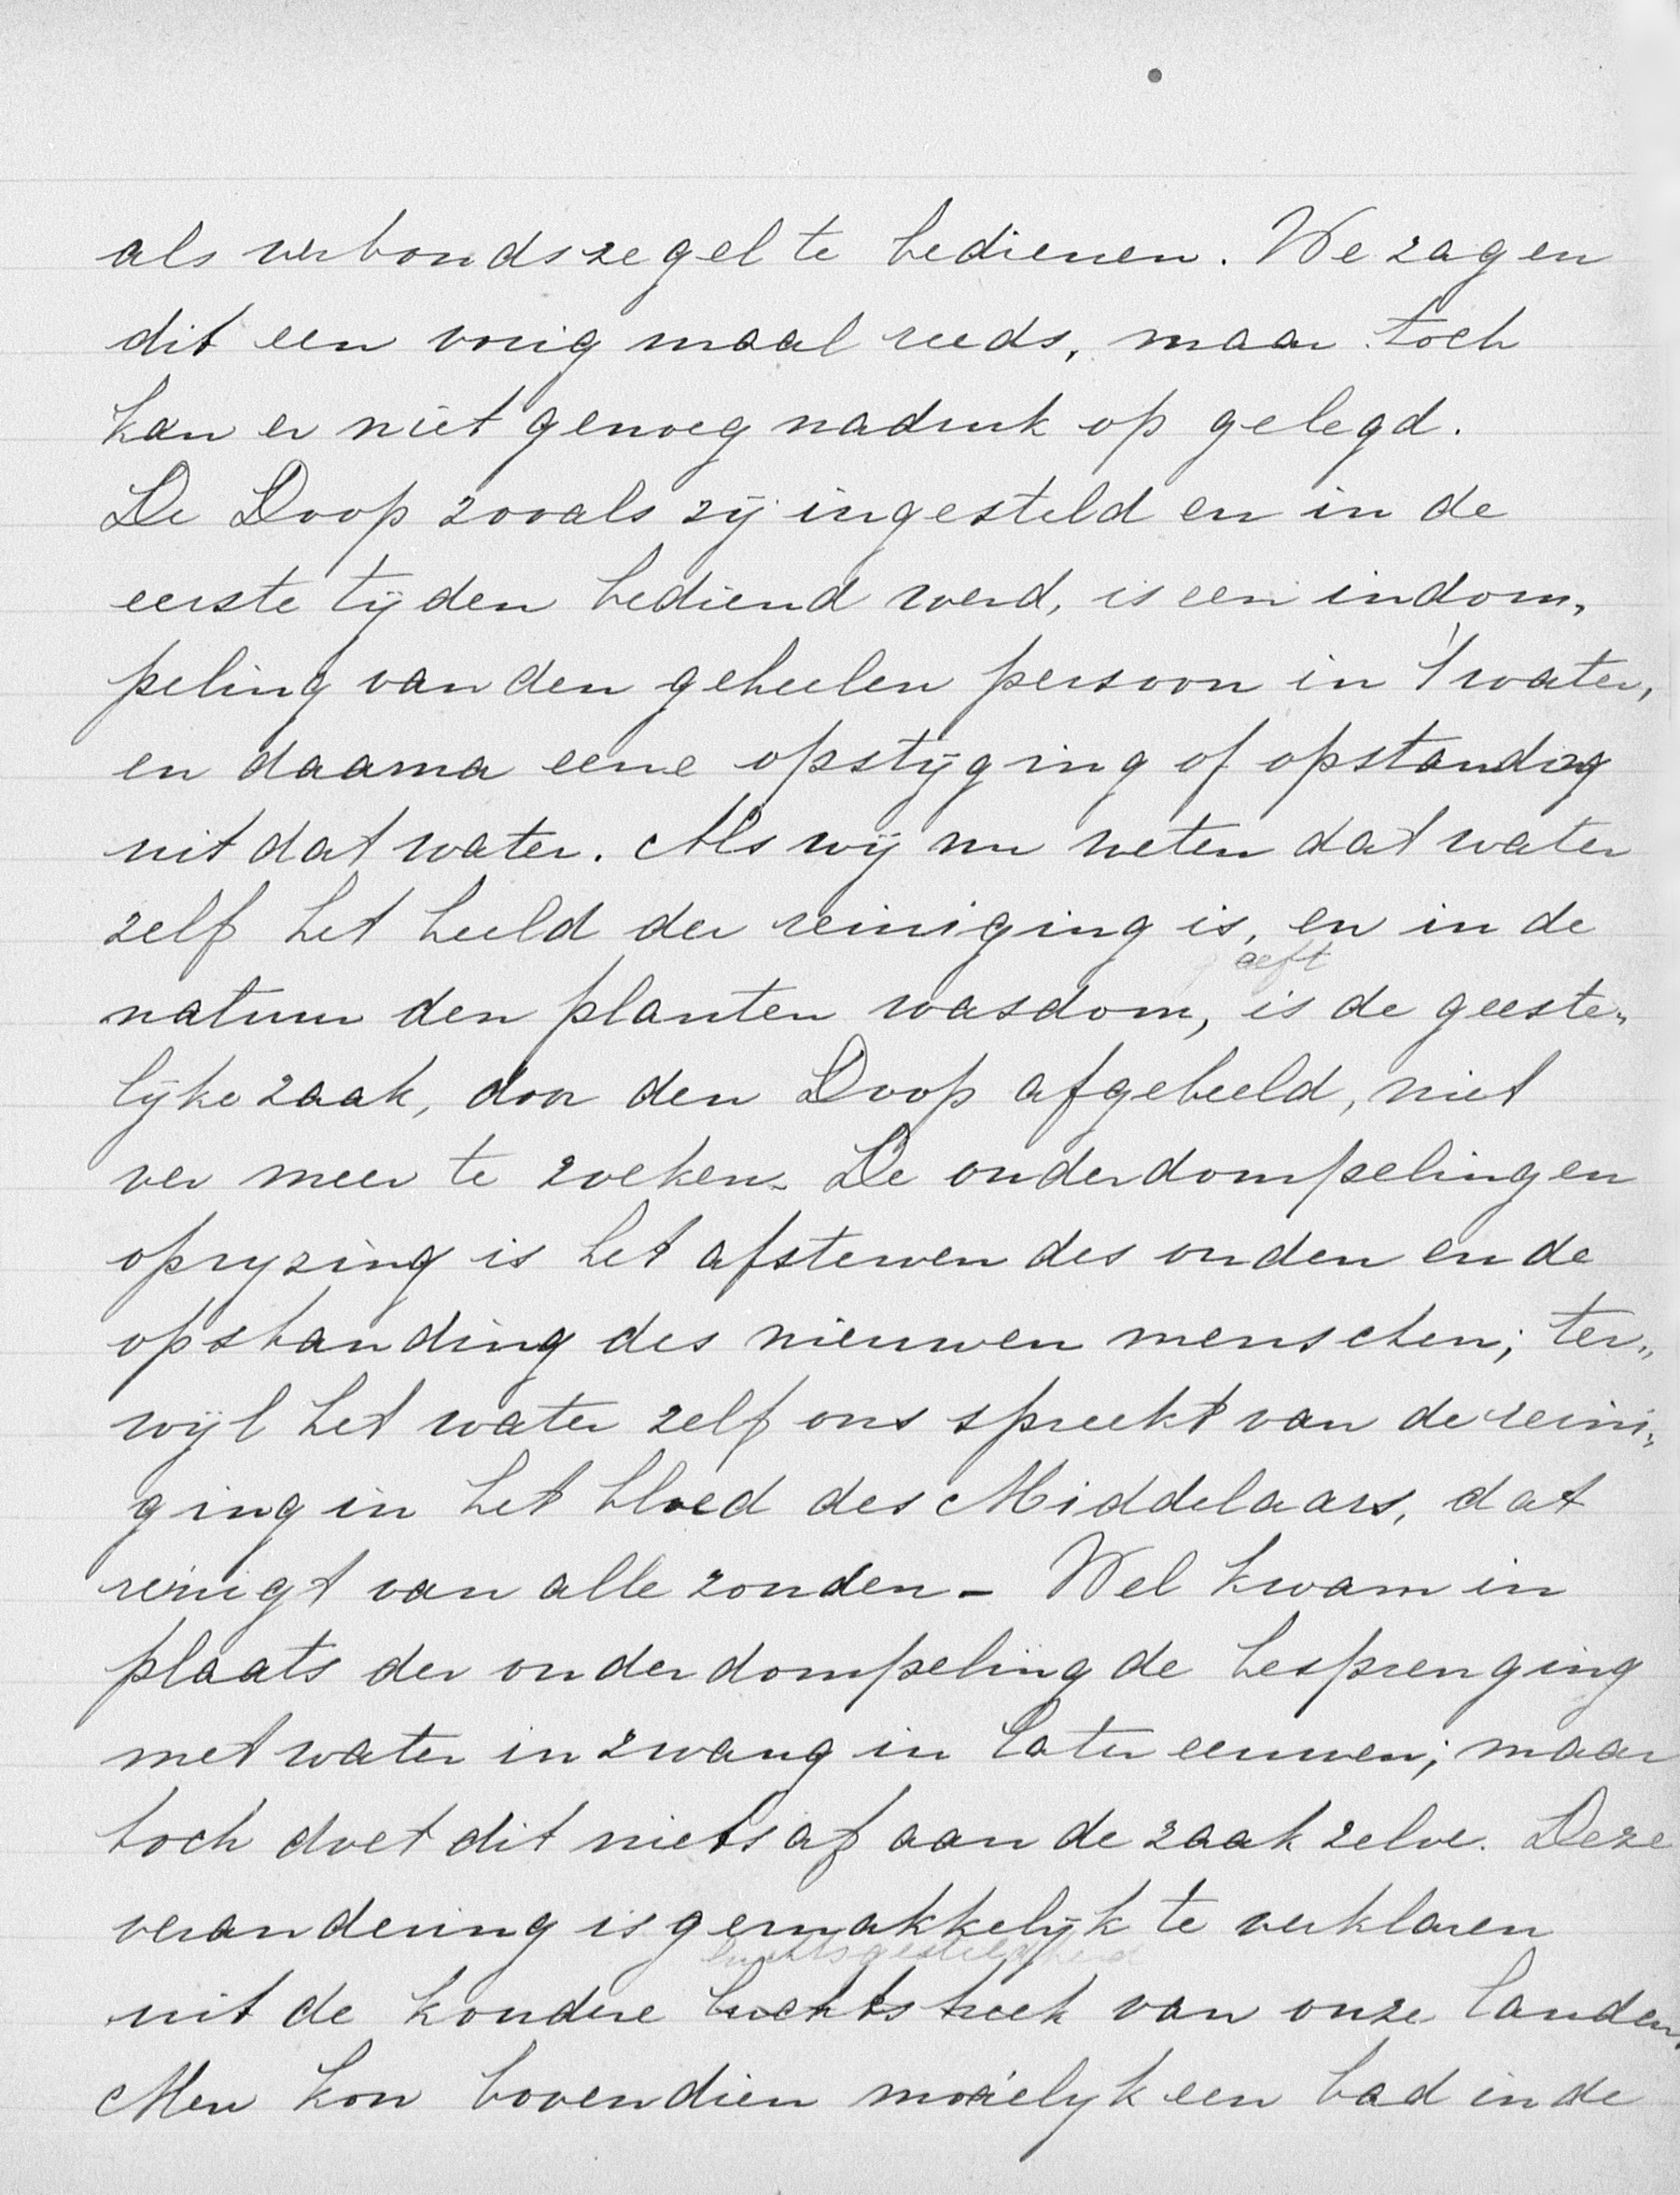 als verbondszegel te bedienen. We zagen
dit een vorig maal reeds, maar toch
kan er niet genoeg nadruk op gelegd.
De Doop zooals zij ingesteld en in de
eerste tijden bediend werd, is een indom„
peling van den geheelen persoon in 't water,
en daarna eene opstijging of opstanding
uit dat water. Als wij nu weten dat water
zelf het beeld der reiniging is, en in de
geeft
natuur den planten wasdom, is de geeste„
lijke zaak, door den Doop afgebeeld, niet
ver meer te zoeken. De onderdompeling en
opryzing is het afsterven des ouden en de
opstanding des nieuwen menschen; ter„
wijl het water zelf ons spreekt van de reini„
ging in het bloed des Middelaars, dat
reinigt van alle zonden - Wel kwam in
plaats der onderdompeling de besprenging
met water in zwang in later eeuwen; maar
toch doet dit niets af aan de zaak zelve. Deze
verandering is gemakkelijk te verklaren
luchtsgesteldheid
uit de koudere luchtstreek van onze landen.
Men kon bovendien moeielyk een bad in de